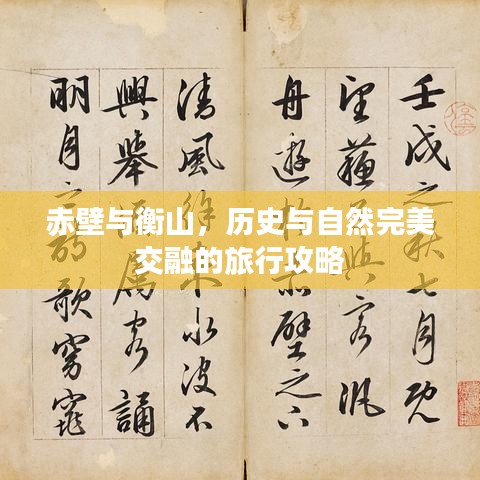 壬戌之秋七月既
望蘇與客汎
舟遊於赤壁之下
清風徐來水波不
興舉屬客誦
明月之詩歌窈窕
赤壁与衡山，历史与自然完美
交融的旅行攻略